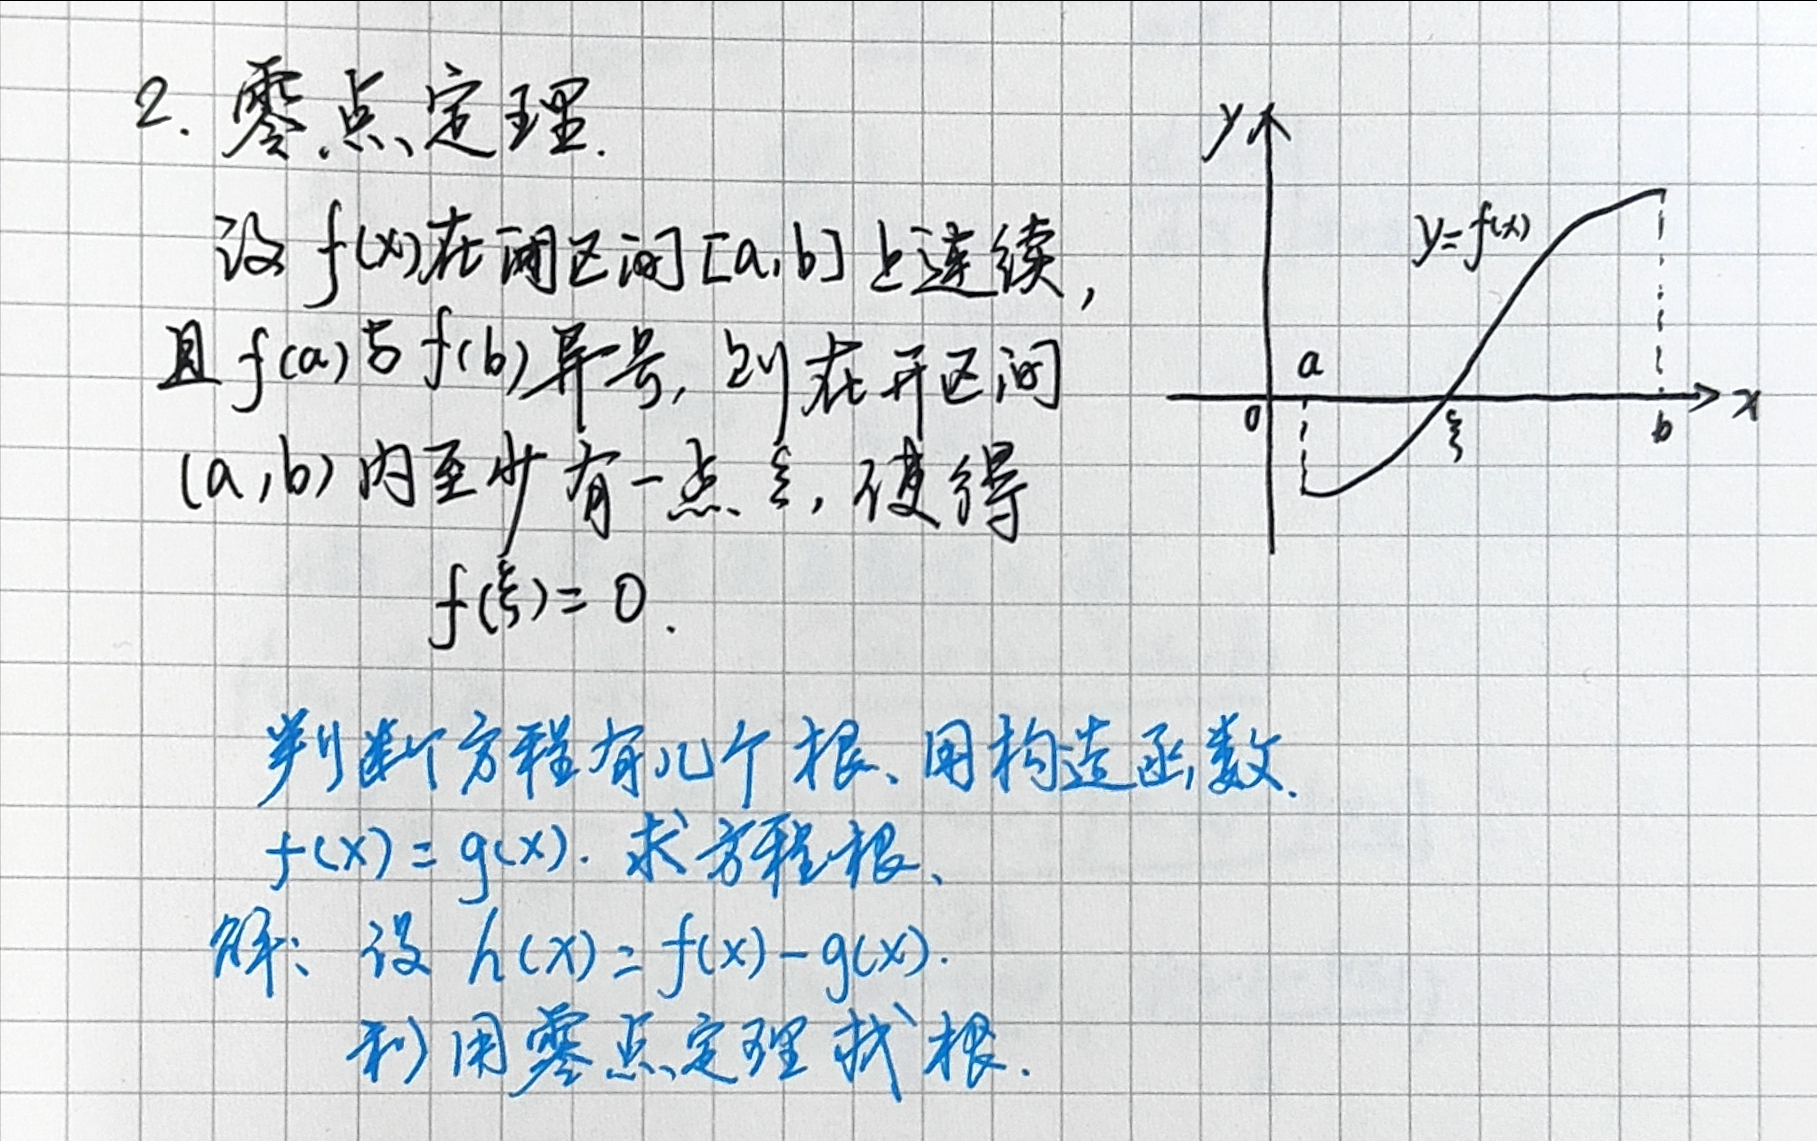 2. 零点定理.
设 f(x)在闭区间[a,b]上连续,
且 f(a)与f(b)异号, 则在开区间
(a,b)内至少有一点 ξ, 使得
f(ξ)=0.
y
y=f(x)
a
0
ξ
b
x
判断方程有几个根、用构造函数.
f(x)=g(x). 求方程根、
解: 设 h(x)=f(x)-g(x).
利用零点定理找根.